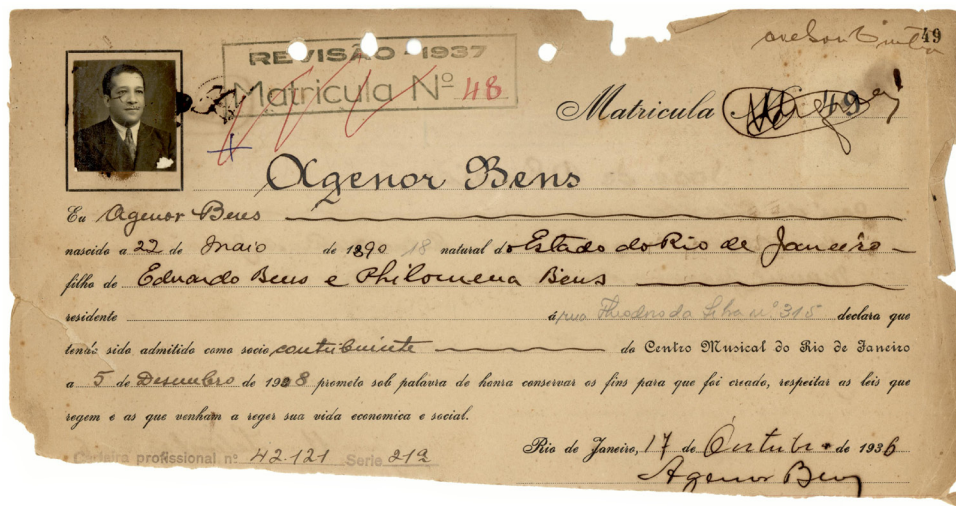 49
REVISÃO 1937
Matricula Nº 48
Matricula 49
Agenor Bens
Eu Agenor Bens
nascido a 22 de Maio de 1890 18 natural do Estado do Rio de Janeiro
filho de Eduardo Bens e Philomena Bens
residente á rua Theodoro da Silva nº 315 declara que
tendo sido admitido como socio contribuinte do Centro Musical do Rio de Janeiro
a 5 de Desembro de 1928 prometo sob palavra de honra conservar os fins para que foi creado, respeitar as leis que
regem e as que venham a reger sua vida economica e social.
Carteira profissional nº 42.121 Serie 212
Rio de Janeiro, 17 de Outubro de 1936
Agenor Bens